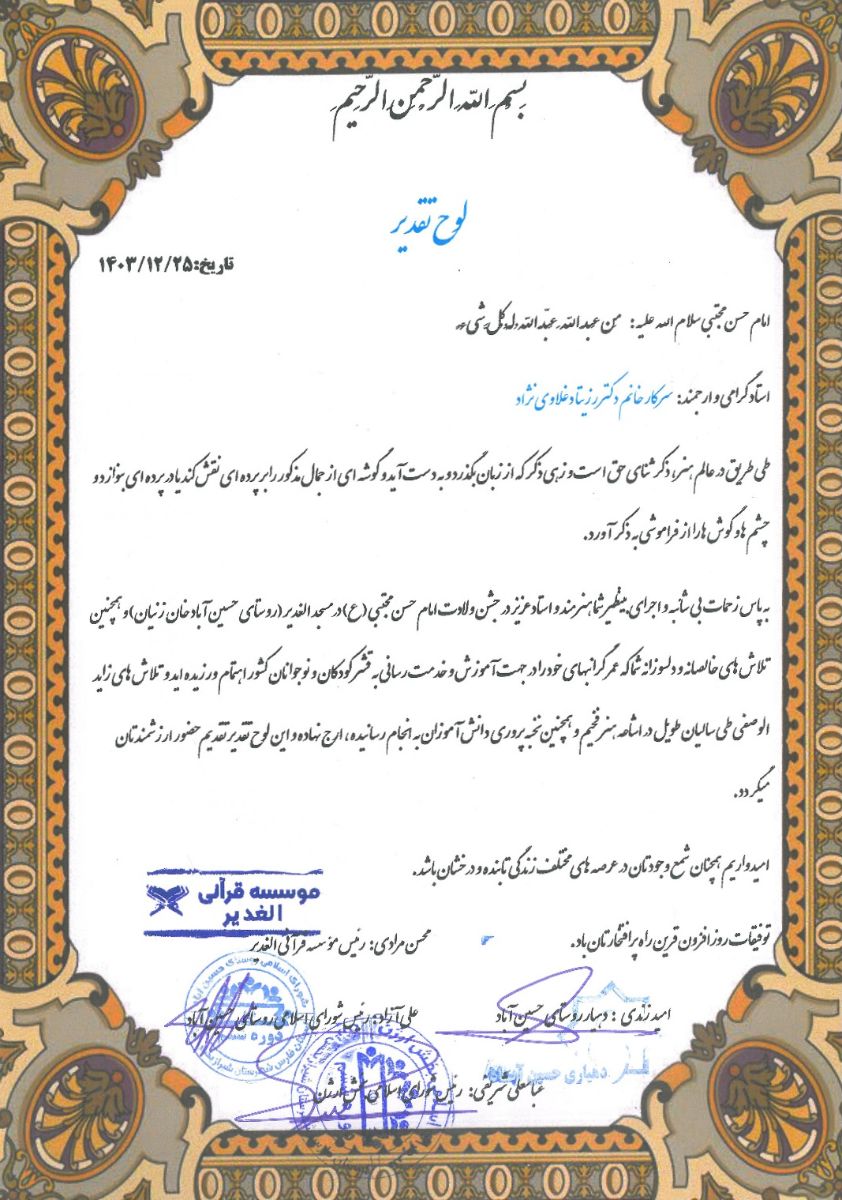 بِسْمِ اللّهِ الرَّحْمنِ الرَّحِيمِ
لوح تقدیر
تاریخ:۱۴۰۳/۱۲/۲۵
امام حسن مجتبی سلام الله علیه: من عبد الله عبّد الله له کل شیء
استاد گرامی و ارجمند: سرکار خانم دکتر رزیتا دغلاوی نژاد
طی طریق در عالم هنر، ذکر ثنای حق است و زهی ذکر که از زبان بگذرد و به دست آید و گوشه ای از جمال مذکور را بر پرده ای نقش کند یا در پرده ای بنوازد و
چشم ها و گوش ها را از فراموشی به ذکر آورد.
به پاس زحمات بی شائبه و اجرای بینظیر شما هنرمند و استاد عزیز در جشن ولادت امام حسن مجتبی (ع) در مسجد الغدیر (روستای حسین آباد خان زنیان) و همچنین
تلاش های خالصانه و دلسوزانه شما که عمر گرانبهای خود را در جهت آموزش و خدمت رسانی به قشر کودکان و نوجوانان کشور اهتمام ورزیده اید و تلاش های زاید
الوصفی طی سالیان طویل در اشاعه هنر فخیم و همچنین نخبه پروری دانش آموزان به انجام رسانیده، ارج نهاده و این لوح تقدیر تقدیم حضور ارزشمندتان
میگردد.
امیدواریم همچنان شمع وجودتان در عرصه های مختلف زندگی تابنده و درخشان باشد.
موسسه قرآنی
الغدیر
توفیقات روزافزون قرین راه پرافتخارتان باد.
محسن مرادی: رئیس مؤسسه قرآنی الغدیر
امید زندی : دهیار روستای حسین آباد
علی آزاد: رئیس شورای اسلامی روستای حسین آباد
دوره
دهیاری حسین آباد
عباسعلی شریفی: رئیس شورای اسلامی بخش ارژن